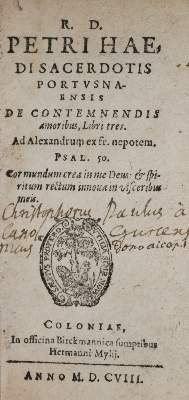 R. D.
PETRI HAE,
DI SACERDOTIS
PORTVSNA-
ENSIS
DE CONTEMNENDIS
amoribus, Libri tres.
Ad Alexandrum ex fr. nepotem.
PSAL. 50.
Cor mundum crea in me Deus: & spi-
ritum rectum innova in visceribus
meis.
Christophorus Paulus à
COLONIAE,
In officina Birckmannica sumptibus
Hermanni Mylij.
ANNO M. D. CVIII.